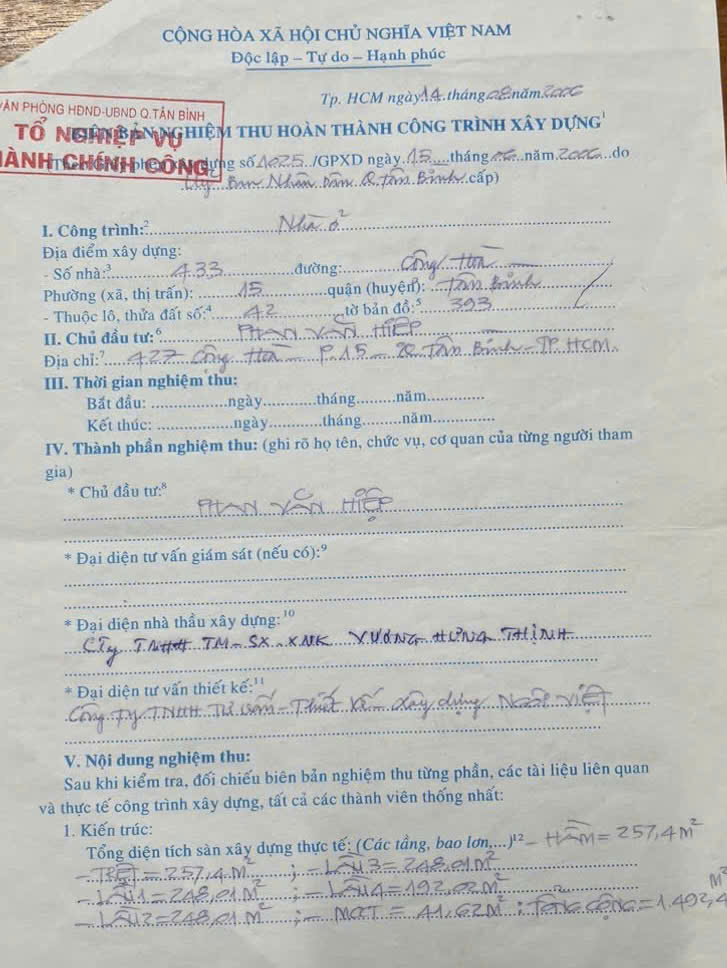 CỘNG HÒA XÃ HỘI CHỦ NGHĨA VIỆT NAM
Độc lập – Tự do – Hạnh phúc
Tp. HCM ngày 14 tháng 08 năm 2006
VĂN PHÒNG HĐND-UBND Q.TÂN BÌNH
TỔ NGHIỆP VỤ
HÀNH CHÍNH CÔNG
BIÊN BẢN NGHIỆM THU HOÀN THÀNH CÔNG TRÌNH XÂY DỰNG¹
dựng số /GPXD ngày 15 tháng năm 2006 do
Ủy Ban Nhân Dân Q. Tân Bình cấp)
I. Công trình:² Nhà ở²
Địa điểm xây dựng:
- Số nhà:³ 433 đường: Cộng Hòa
Phường (xã, thị trấn): 15 quận (huyện): Tân Bình
- Thuộc lô, thửa đất số:⁴ 42 tờ bản đồ:⁵ 393
II. Chủ đầu tư:⁶ PHAN VĂN HIỆP
Địa chỉ:⁷ 427 Cộng Hòa P.15 – Q Tân Bình – TP. HCM.
III. Thời gian nghiệm thu:
Bắt đầu: ............ngày............tháng.........năm............
Kết thúc: ............ngày............tháng.........năm............
IV. Thành phần nghiệm thu: (ghi rõ họ tên, chức vụ, cơ quan của từng người tham
gia)
* Chủ đầu tư:⁸
PHAN VĂN HIỆP
* Đại diện tư vấn giám sát (nếu có):⁹
* Đại diện nhà thầu xây dựng:¹⁰
CTy TNHH TM – SX . XNK VƯƠNG HƯNG THỊNH
* Đại diện tư vấn thiết kế:¹¹
Công Ty TNHH Tư vấn – Thiết Kế – Xây dựng VIỆT
V. Nội dung nghiệm thu:
Sau khi kiểm tra, đối chiếu biên bản nghiệm thu từng phần, các tài liệu liên quan
và thực tế công trình xây dựng, tất cả các thành viên thống nhất:
1. Kiến trúc:
Tổng diện tích sàn xây dựng thực tế: (Các tầng, bao lơn,...)¹² – HẦM = 257,4 M²
– TRỆT = 257,4 M² ; – LẦU 3 = 248,01 M²
– LẦU 1 = 248,01 M² ; – LẦU 4 = 192,02 M²
– LẦU 2 = 248,01 M² ; – MCT = 41,62 M² ; TỔNG CỘNG = 1.492,4 M²